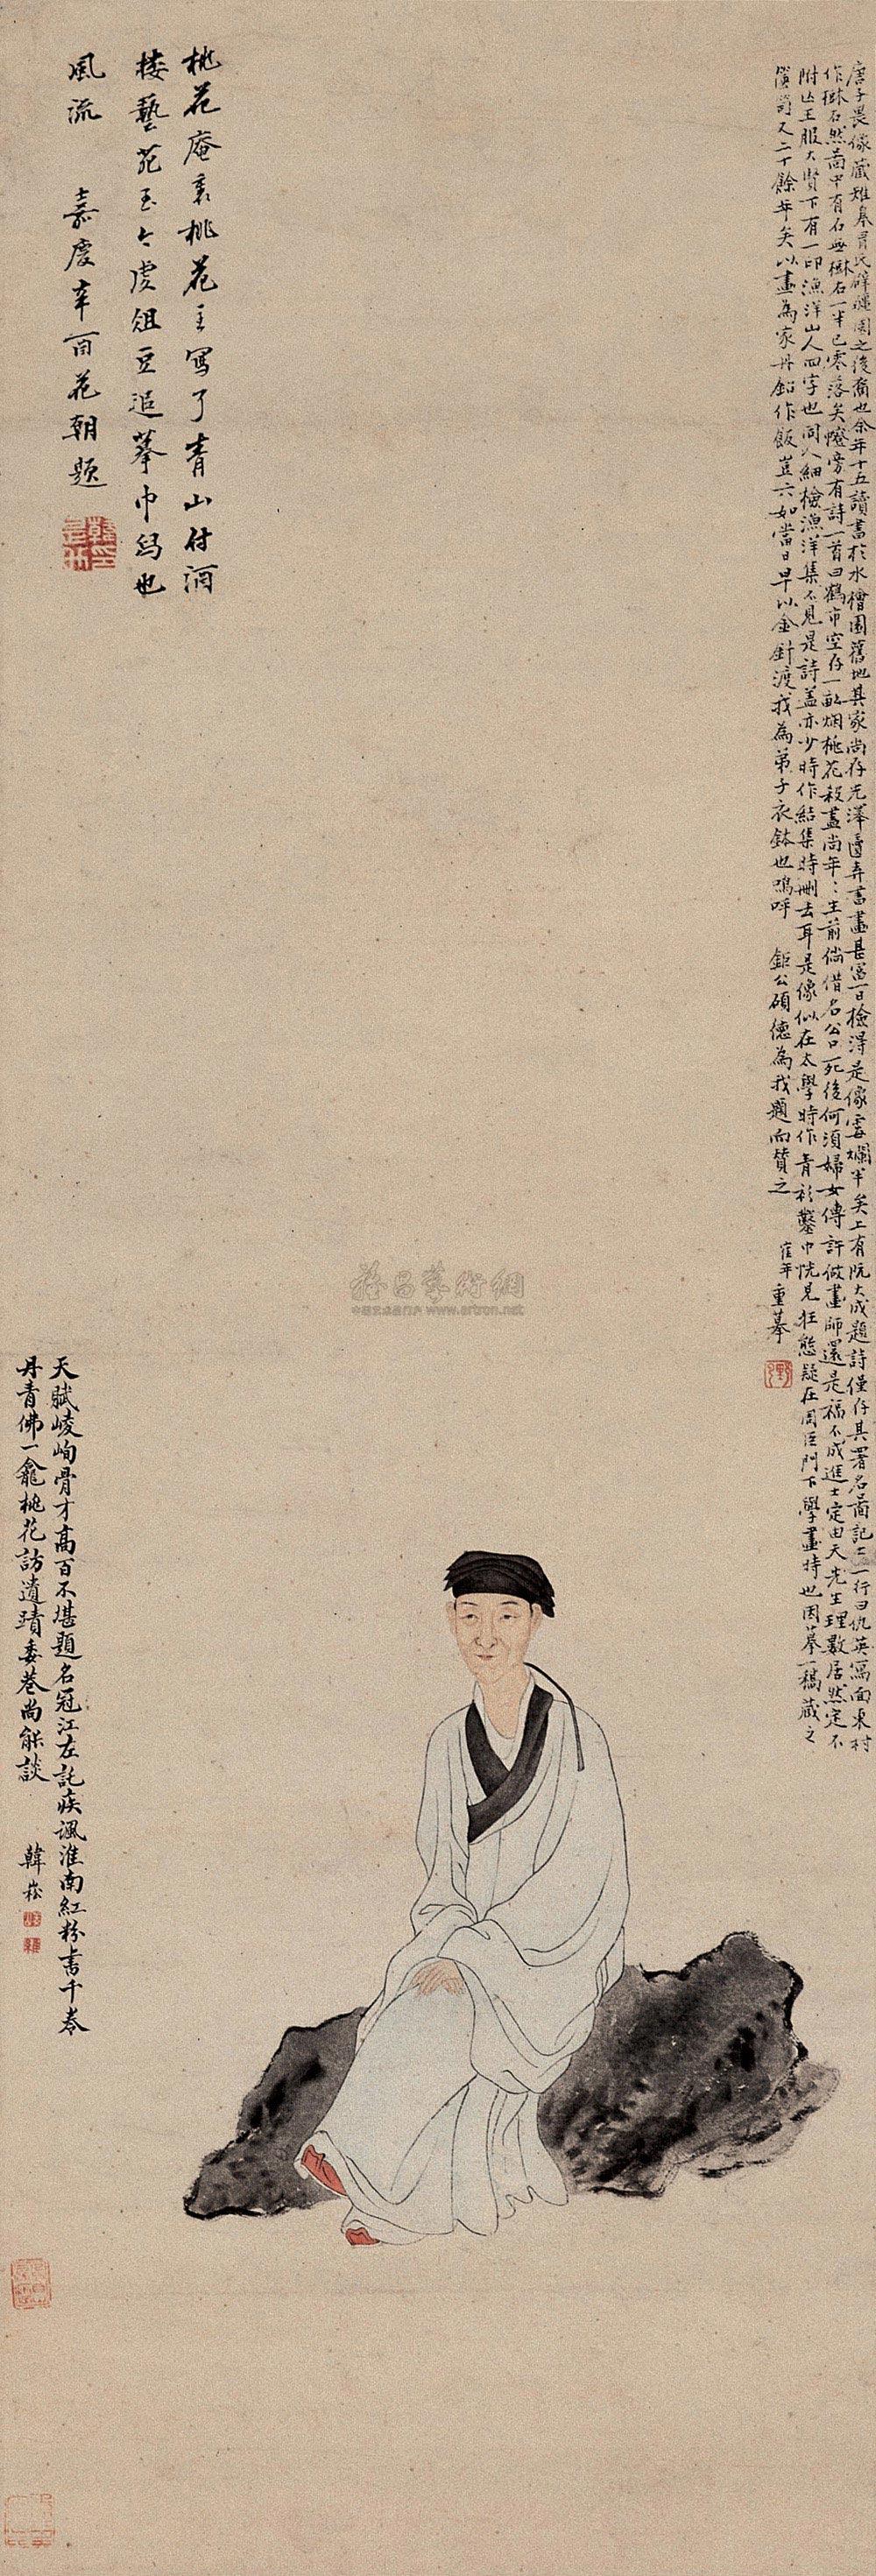 唐子畏像藏雉皋冒氏辟疆園之後裔也余年十五讀書於水檜園舊地其家尚存先澤圖弆書畫甚富一日檢得是像霉爛半矣上有阮大成題詩僅存其署名圖記上一行曰仇英寫面東村
作樹石然圖中有石無樹石一半已零落矣幛旁有詩一首曰鶴市空存一畝烟桃花殺盡尚年年生前倘借名公口死後何須婦女傳許做畫師還是福不成進士定由天先生理數居然定不
附亡王服大賢下有一印漁洋山人四字也同人細檢漁洋集不見是詩蓋亦少時作結集時刪去耳是像似在太學時作青衫鑿巾恍見狂態疑在周臣門下學畫時也因摹一稿藏之
篋笥又二十餘年矣以畫為家丹鉛作飯豈六如當日早以金針渡我為弟子衣鉢也嗚呼 鉅公碩德為我題而贊之 在年重摹
桃花庵裏桃花主寫了青山付酒
楼藝苑至今虔俎豆追摹巾舄也
風流 嘉慶辛酉花朝題
天賦崚峋骨才高百不堪題名冠江左託疾諷淮南紅粉書千卷
丹青佛一龕桃花訪遺蹟委巷尚能談 韓崧